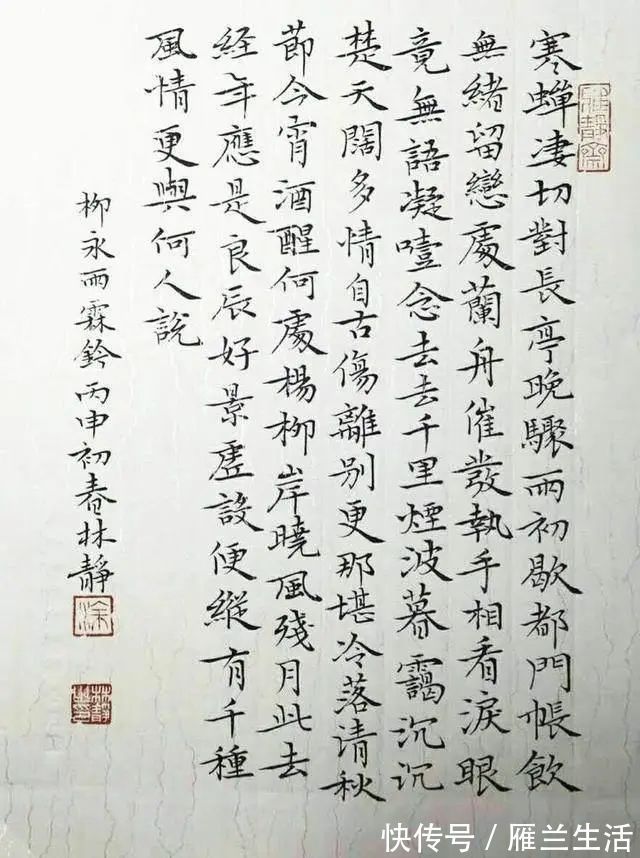 寒蟬淒切對長亭晚驟雨初歇都門帳飲
無緒留戀處蘭舟催發執手相看淚眼
竟無語凝噎念去去千里煙波暮靄沉沉
楚天闊多情自古傷離別更那堪冷落清秋
節今宵酒醒何處楊柳岸曉風殘月此去
經年應是良辰好景虛設便縱有千種
風情更與何人說
柳永雨霖鈴丙申初春林靜
快传号 / 雁兰生活